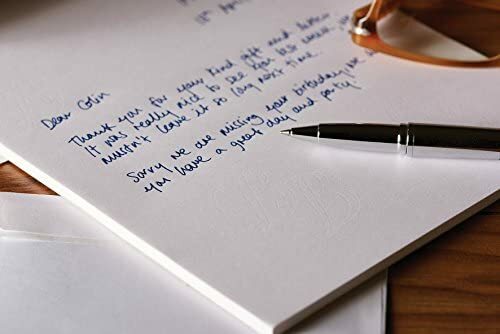 Dear Colin
Thank you for your kind gift and letter
It was really nice to see you last week, we
mustn't leave it so long next time.
Sorry we are missing your birthday, we
you have a great day and party.